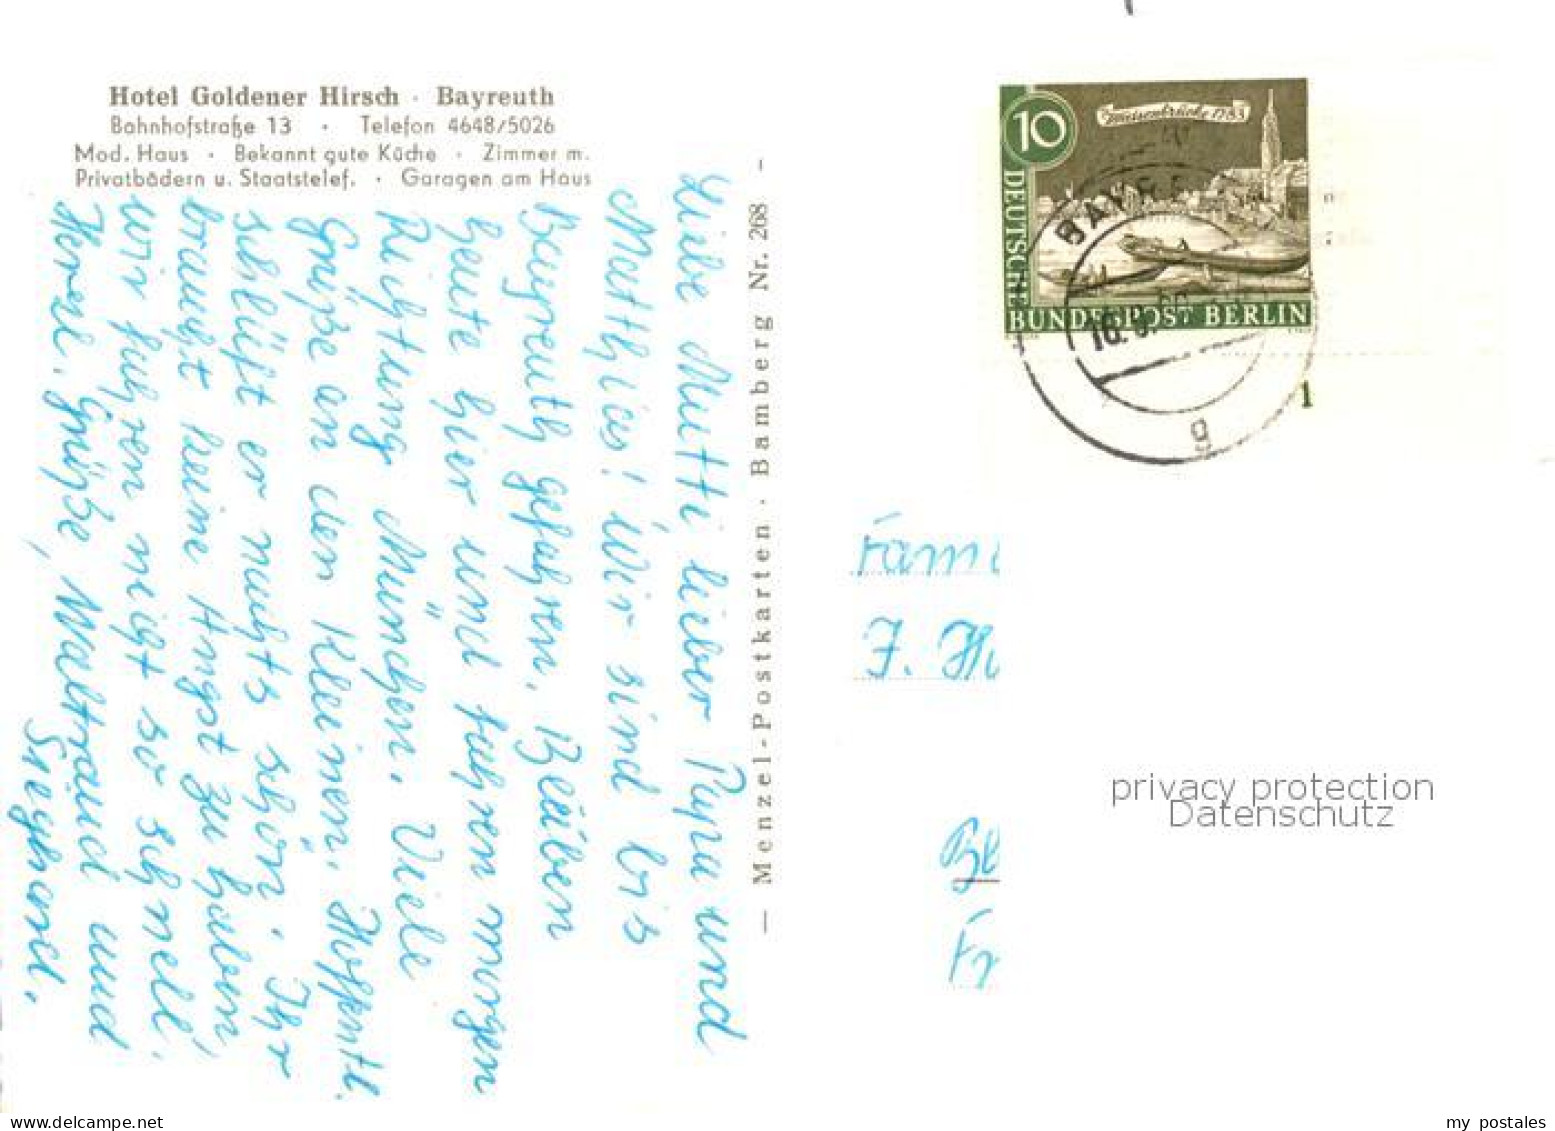 Hotel Goldener Hirsch · Bayreuth
Bahnhofstraße 13 · Telefon 4648/5026
Mod. Haus · Bekannt gute Küche · Zimmer m.
Privatbädern u. Staatstelef. · Garagen am Haus
Liebe Mutti lieber Papa und
Matthias! Wir sind bis
Bayreuth gefahren. Bleiben
heute hier und fahren morgen
Richtung München. Viele
Grüße an den Kleinen. Hoffentl.
schläft er nachts schön. Ihr
braucht keine Angst zu haben,
wir fahren nicht so schnell.
Herzl. Grüße, Waltraud und
— Menzel-Postkarten · Bamberg Nr. 268 —
10
Waisenbrücke 1783
DEUTSCHE
BUNDESPOST BERLIN
g
1
Fam
J. H
Be
Fr
privacy protection
Datenschutz
www.delcampe.net
my_postales